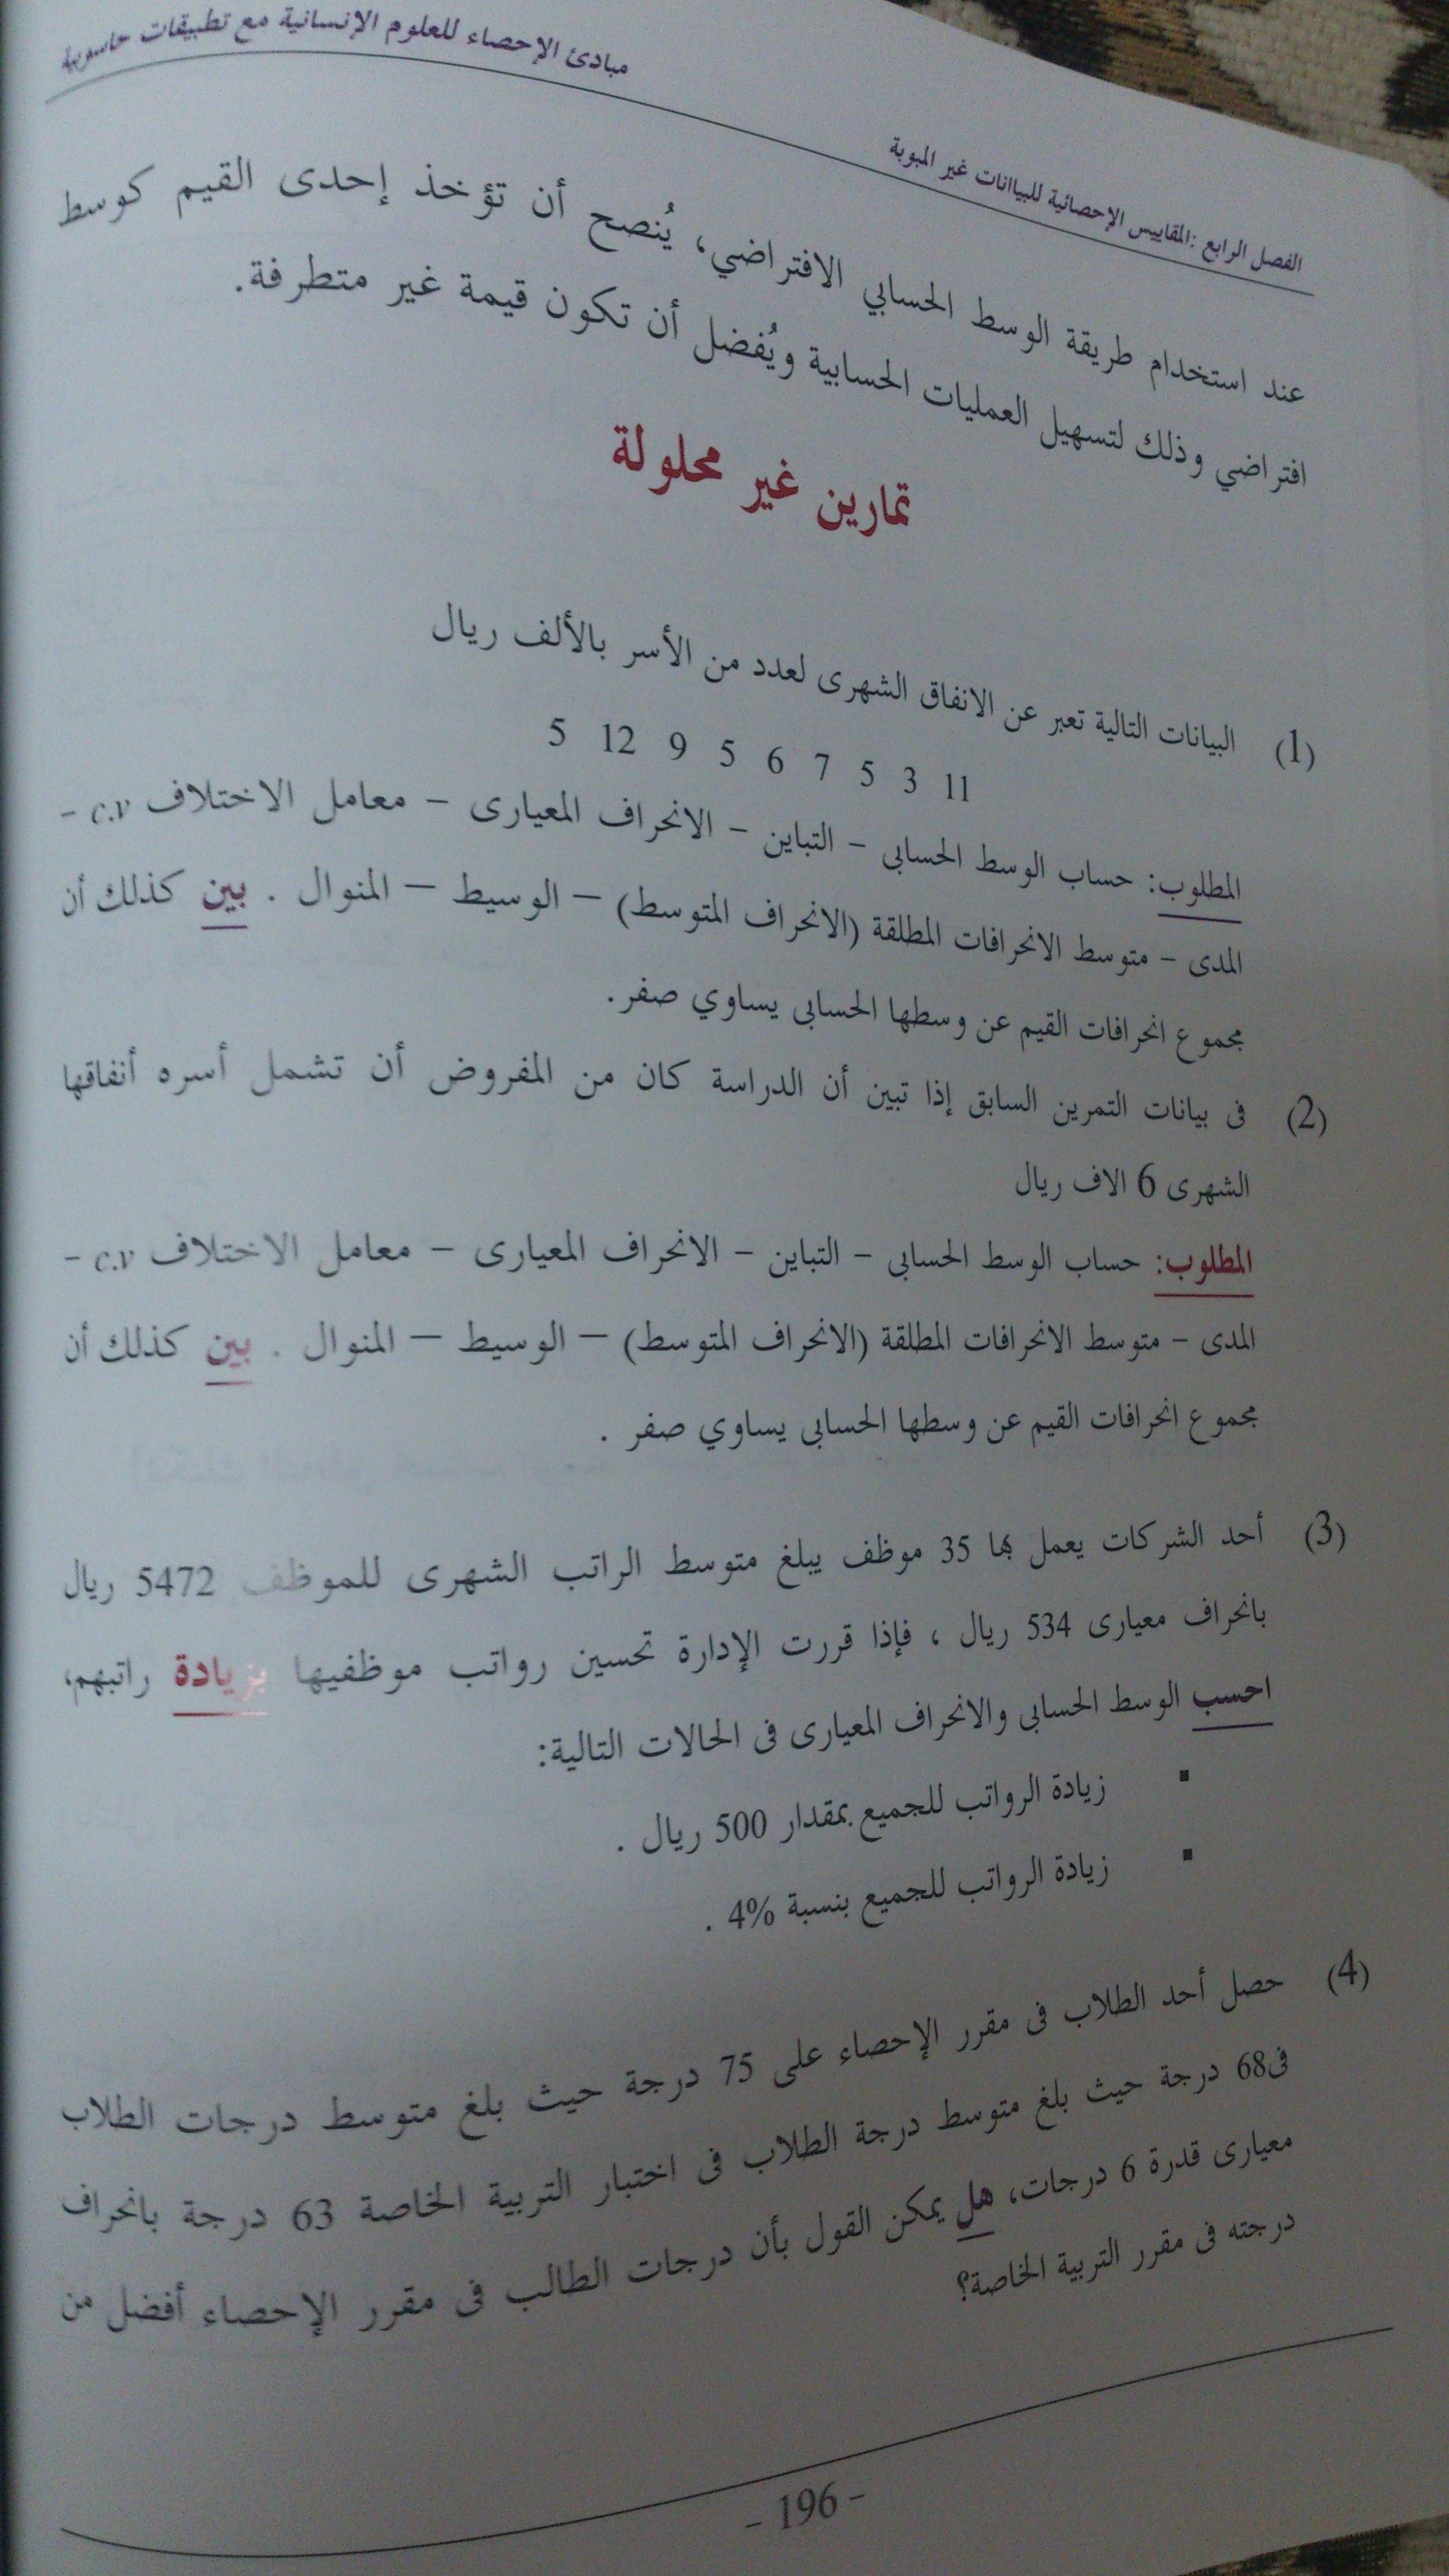 مبادئ الإحصاء للعلوم الإنسانية مع تطبيقات حاسوبية
الفصل الرابع :المقاييس الإحصائية للبيانات غير المبوبة
عند استخدام طريقة الوسط الحسابي الافتراضي، يُنصح أن تؤخذ إحدى القيم كوسط
افتراضي وذلك لتسهيل العمليات الحسابية ويُفضل أن تكون قيمة غير متطرفة.
تمارين غير محلولة
(1) البيانات التالية تعبر عن الانفاق الشهرى لعدد من الأسر بالألف ريال
5 12 9 5 6 7 5 3 11
المطلوب: حساب الوسط الحسابى – التباين – الانحراف المعيارى – معامل الاختلاف c.v –
المدى – متوسط الانحرافات المطلقة (الانحراف المتوسط) – الوسيط – المنوال . بين كذلك أن
مجموع انحرافات القيم عن وسطها الحسابى يساوي صفر.
(2) فى بيانات التمرين السابق إذا تبين أن الدراسة كان من المفروض أن تشمل أسره أنفاقها
الشهرى 6 الاف ريال
المطلوب: حساب الوسط الحسابى – التباين – الانحراف المعيارى – معامل الاختلاف c.v –
المدى – متوسط الانحرافات المطلقة (الانحراف المتوسط) – الوسيط – المنوال . بين كذلك أن
مجموع انحرافات القيم عن وسطها الحسابى يساوي صفر .
(3) أحد الشركات يعمل بها 35 موظف يبلغ متوسط الراتب الشهرى للموظف 5472 ريال
بانحراف معيارى 534 ريال ، فإذا قررت الإدارة تحسين رواتب موظفيها بزيادة راتبهم،
احسب الوسط الحسابى والانحراف المعيارى فى الحالات التالية:
▪ زيادة الرواتب للجميع بمقدار 500 ريال .
▪ زيادة الرواتب للجميع بنسبة 4% .
(4) حصل أحد الطلاب فى مقرر الإحصاء على 75 درجة حيث بلغ متوسط درجات الطلاب
فى68 درجة حيث بلغ متوسط درجة الطلاب فى اختبار التربية الخاصة 63 درجة بانحراف
معيارى قدرة 6 درجات، هل يمكن القول بأن درجات الطالب فى مقرر الإحصاء أفضل من
درجته فى مقرر التربية الخاصة؟
- 196 -